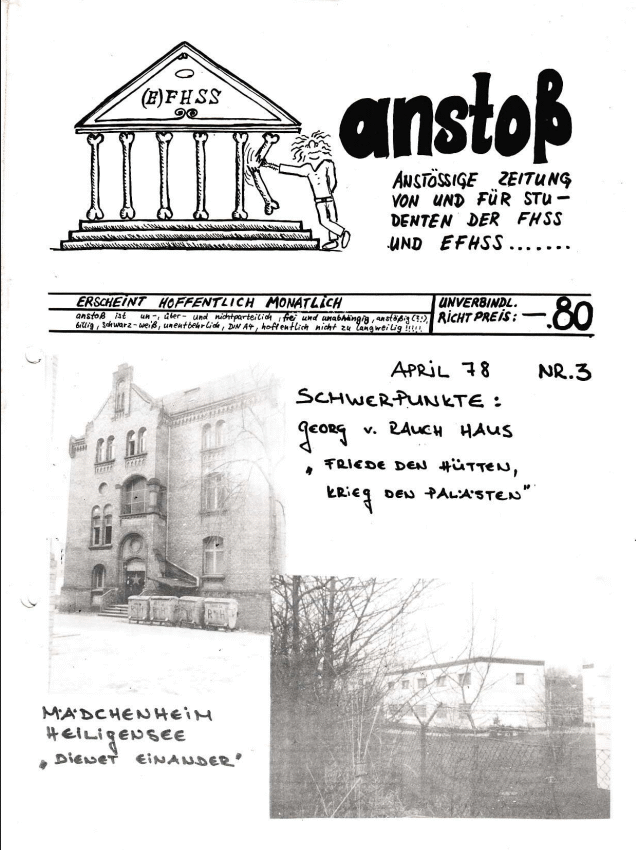 (E)FHSS
anstoß
ANSTÖSSIGE ZEITUNG
VON UND FÜR STU-
DENTEN DER FHSS
UND EFHSS.......
ERSCHEINT HOFFENTLICH MONATLICH
anstoß ist un-, über- und nichtparteilich, frei und unabhängig, anstößig (?!),
billig, schwarz-weiß, unentbehrlich, DIN A4, hoffentlich nicht zu langweilig !!!!!
UNVERBINDL.
RICHTPREIS: -.80
APRIL 78 NR.3
SCHWERPUNKTE:
GEORG v. RAUCH HAUS
„FRIEDE DEN HÜTTEN,
KRIEG DEN PALÄSTEN"
MÄDCHENHEIM
HEILIGENSEE
„DIENET EINANDER"